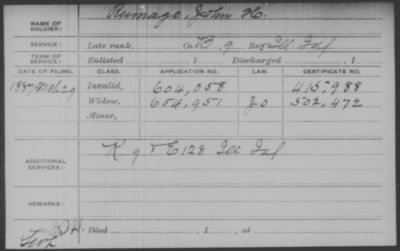 NAME OF SOLDIER: Rumage, John H.
SERVICE: Late rank, Co. B, 9 Reg't Ill Inf
TERM OF SERVICE: Enlisted , 1 Discharged , 1
DATE OF FILING. CLASS. APPLICATION NO. LAW. CERTIFICATE NO.
1887 Invalid, 604,058 415,988
Widow, 654,951 502,472
Minor,
ADDITIONAL SERVICES: K 9 & E 128 Ill Inf
REMARKS:
Died , 1 , at